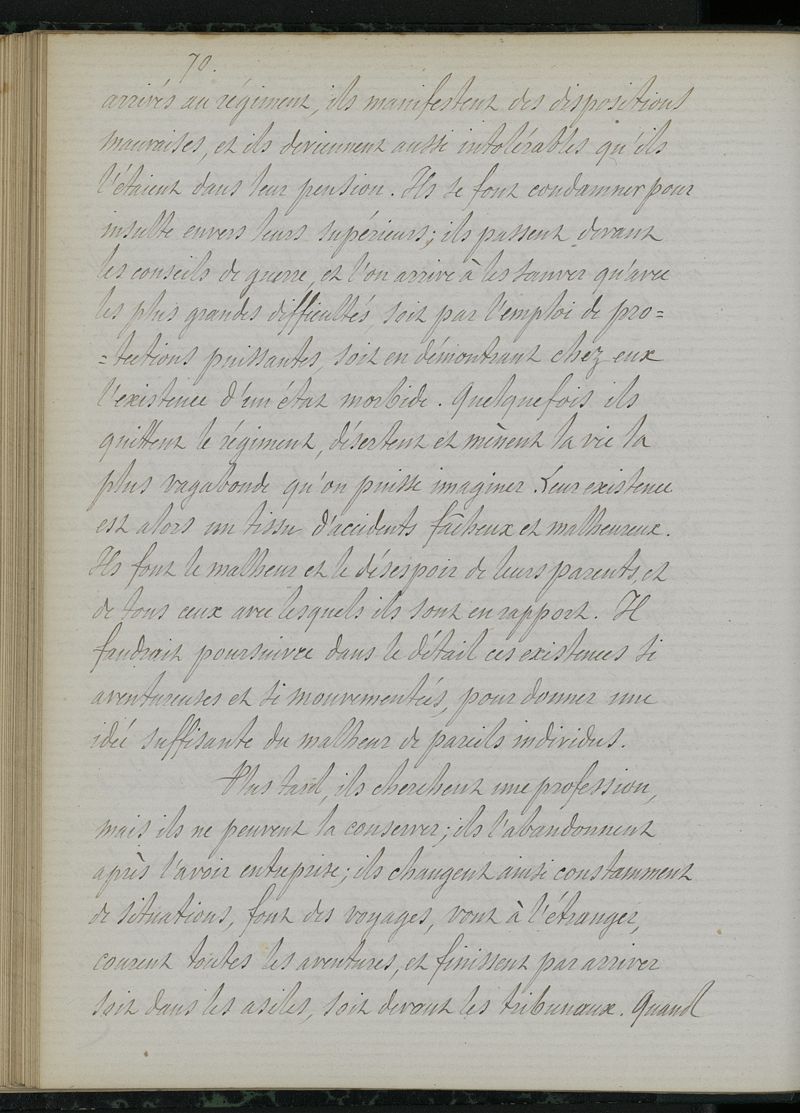 70.
arrivés au régiment, ils manifestent des dispositions
mauvaises, et ils deviennent aussi intolérables qu'ils
l'étaient dans leur pension. Ils se font condamner pour
insulte envers leurs supérieurs; ils passent devant
les conseils de guerre, et l'on arrive à les sauver qu'avec
les plus grandes difficultés, soit par l'emploi de pro=
=tections puissantes, soit en démontrant chez eux
l'existence d'un état morbide. Quelquefois ils
quittent le régiment, désertent et mènent la vie la
plus vagabonde qu'on puisse imaginer. Leur existence
est alors un tissu d'accidents fâcheux et malheureux.
Ils font le malheur et le désespoir de leurs parents, et
de tous ceux avec lesquels ils sont en rapport. Il
faudrait poursuivre dans le détail ces existences si
aventureuses et si mouvementées, pour donner une
idée suffisante du malheur de pareils individus.
Plus tard, ils cherchent une profession,
mais ils ne peuvent la conserver; ils l'abandonnent
après l'avoir entreprise; ils changent ainsi constamment
de situations, font des voyages, vont à l'étranger,
courent toutes les aventures, et finissent par arriver
soit dans les asiles, soit devant les tribunaux. Quand